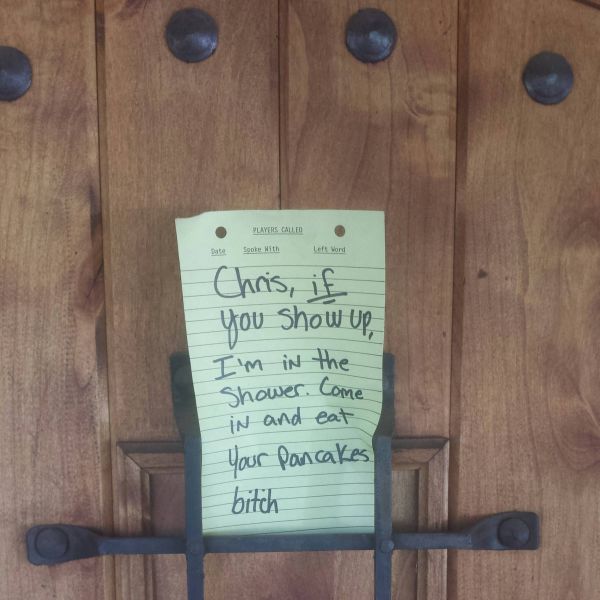 PLAYERS CALLED
Date Spoke With Left Word
Chris, if
you show up,
I'm in the
Shower. Come
in and eat
your pancakes
bitch